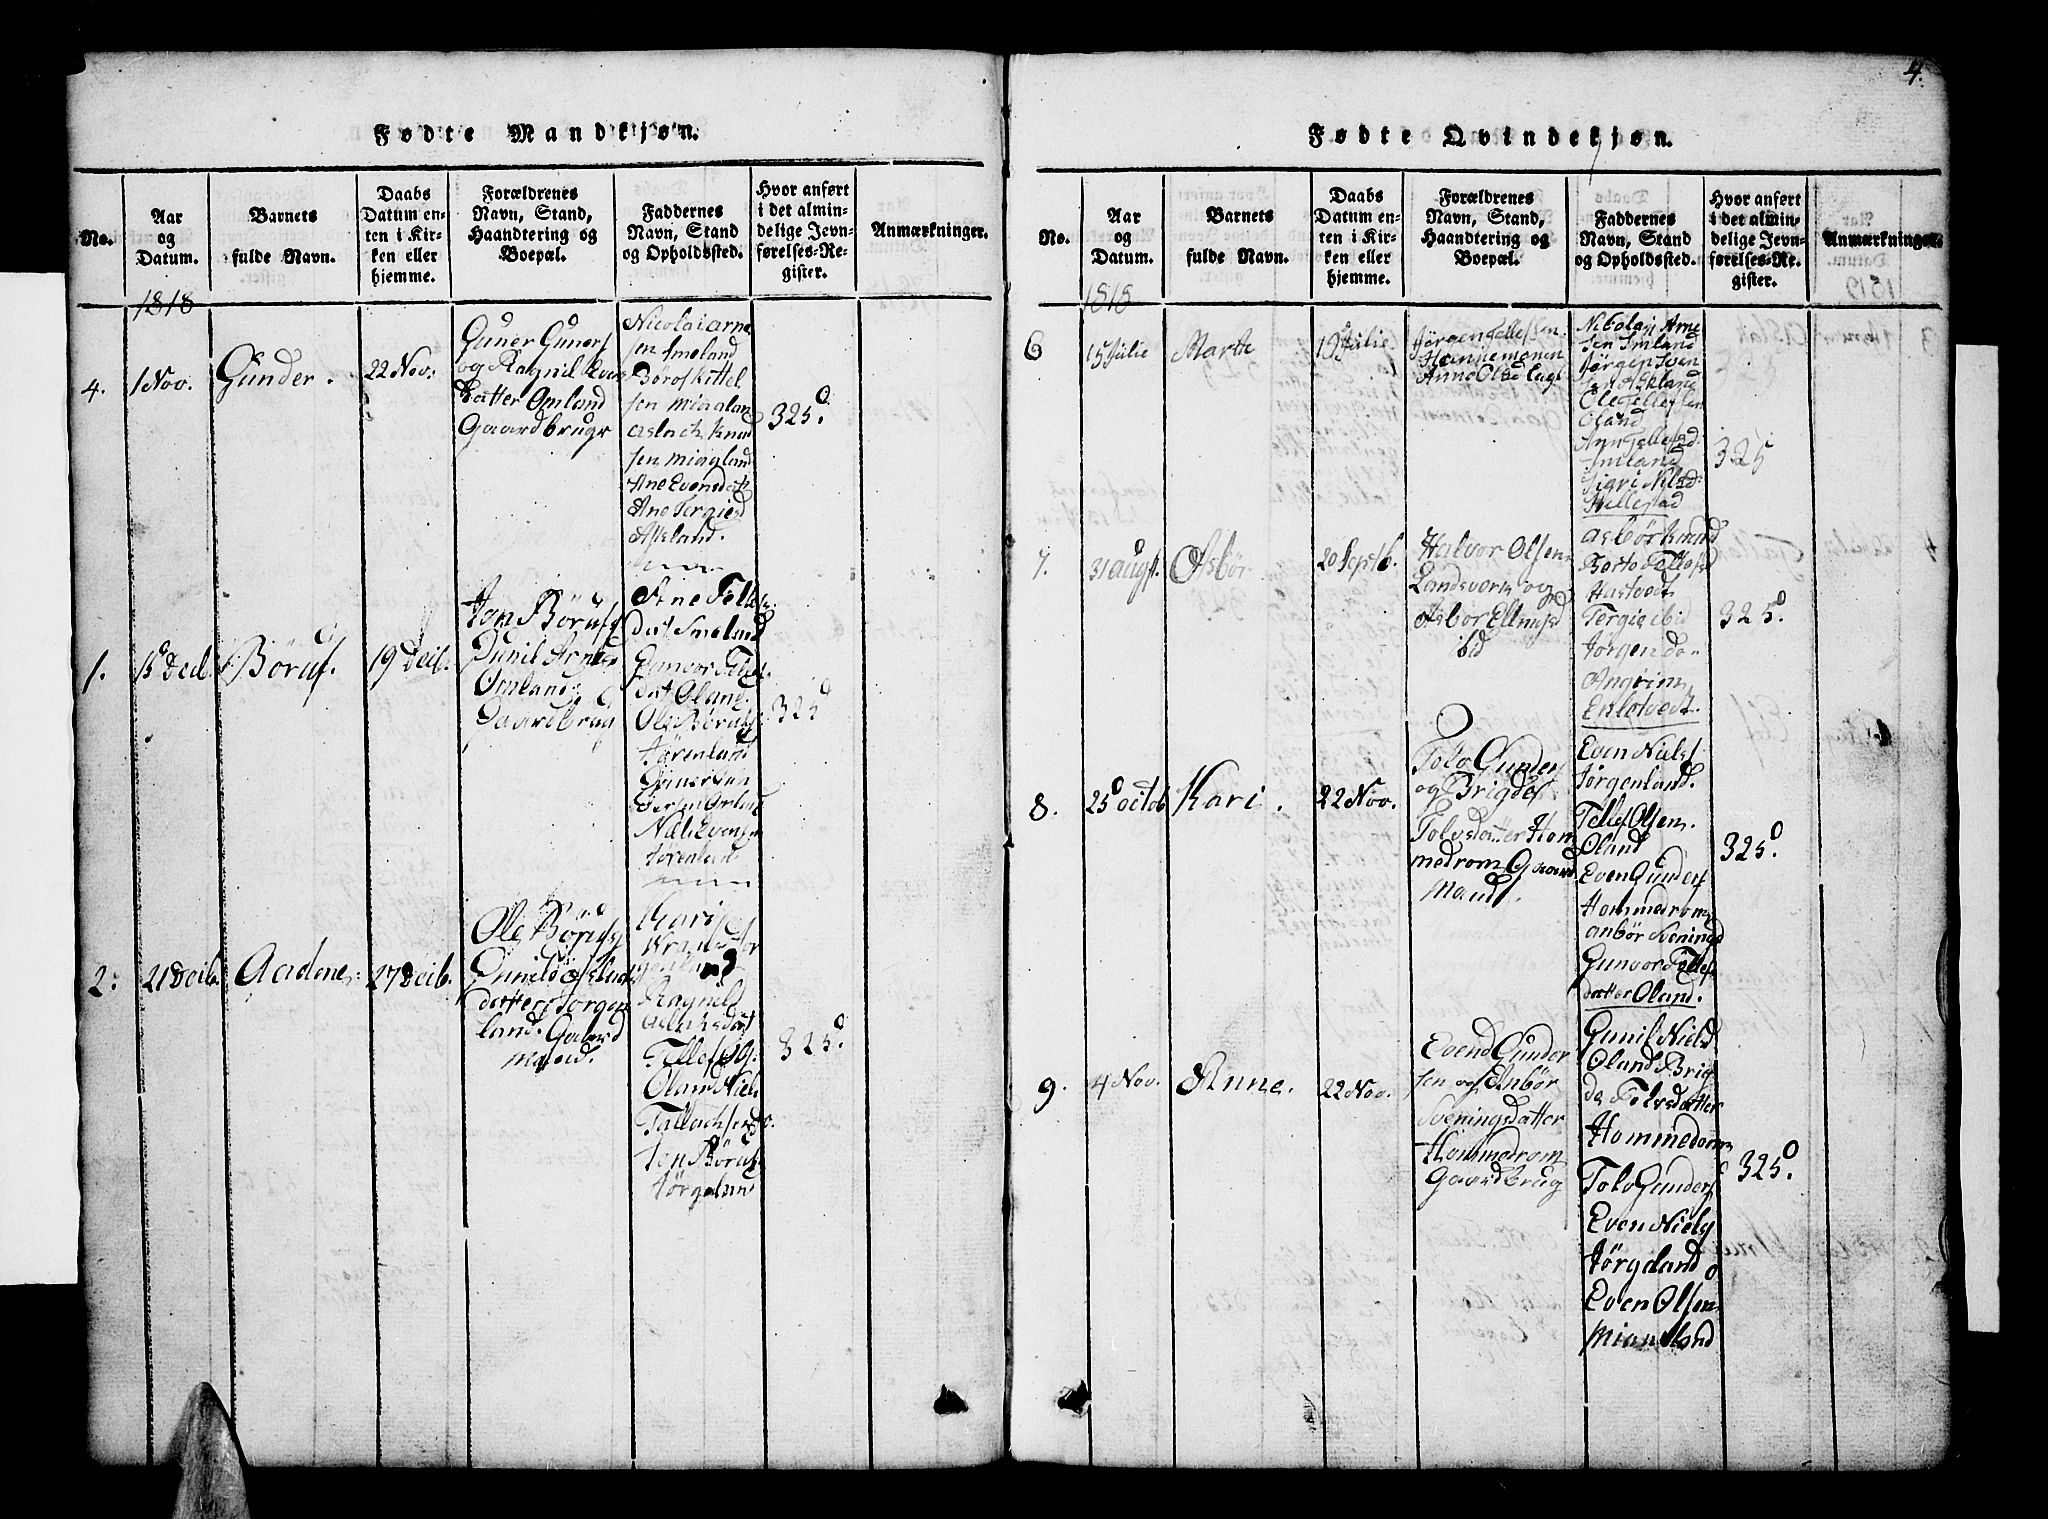 4.
Fødte Mandkjøn.
No.
Aar
og
Datum.
Barnets
fulde Navn.
Daabs
Datum en-
ten i Kir-
ken eller
hjemme.
Forældrenes
Navn, Stand,
Haandtering og
Boepæl.
Faddernes
Navn, Stand
og Opholdssted.
Hvor anført
i det almin-
delige Jevn-
førelses-Re-
gister.
Anmærkninger.
1818
4.
1 Nov.
Gunder.
22 Nov:
Guner Guners
og Ragnil Evens
datter Omland
Gaardbrugr
Nicolai arne
sen smeland
Børos Kittel
sen Miaaland
aslack Knud
sen Miaaland
Ane Evensdatt
Ane Tergiesd
Assland.
325.
1.
15 Decb.
Böruf.
19 Decb.
Jon Börufs
Gunil Arnes
Omland
Gaardbrug
Ane Tellefs
dat Smeland
Gunvor Tellefs
dat Oland
Ole Börufs
Jörenland
Guner Gun
dersen Omland
Niels Evensen
Jörenland
325
2.
21 Decb.
Aadne
27 Decb.
Ole Börufs
Gunild Aslachs
datter Jorgen
land. Gaard
Mand.
Kari
Ragneld
aslaksdat
Tellef Ols.
Oland Niels
Tallachsen do.
Jon Böruf
Jörgeland
325.
Fødte Qvindekjøn.
No.
Aar
og
Datum.
Barnets
fulde Navn.
Daabs
Datum en-
ten i Kir-
ken eller
hjemme.
Forældrenes
Navn, Stand,
Haandtering og
Boepæl.
Faddernes
Navn, Stand
og Opholdssted.
Hvor anført
i det almin-
delige Jevn-
førelses-Re-
gister.
Anmærkninger.
1818
6
15 Julie
Marte
19 Julie
Jörgen Tellefsen
Hannemonen
Anne Olsd
Nikolaj Arne
sen Smland
Jörgen Sven
sen Askland
Ole Tellefsen
Oland
Ann Tellefsd.
Smland
Sigri Nilsd.
Hellestad
325
7.
31 augst.
Asbör
20 Septb.
Halvor Olsen
Landsverk og
Asbor Ellensd
ibid
Asbör Knudsd
Berte Tellefsd
Hastvedt
Tergie ibid
Jorgen do
Angrim
Eklotvedt.
325.
8.
25 octob
Kari.
22 Nov.
Tolv Gunders
og Brigdes
Tolvsdatter Hom
medrom Gaard
Mand.
Even Niels
Jörgenland.
Tellef Olsen
Oland
Even Gunders
Hommedrom
anbör Sveningsd
Gunvor Tellefs
datter Oland.
325.
9.
4 Nov.
Anne.
22 Nov.
Evend Gunder
sen og Anbör
Sveningsdatter
Hommedrom
Gaardbrug
Gunil Nielsd
Oland Brig
de Tolvsdatter
Hommedrom
Tolv Gunders
Even Niels
Jörgeland
Even Olsen
Miansland
325.